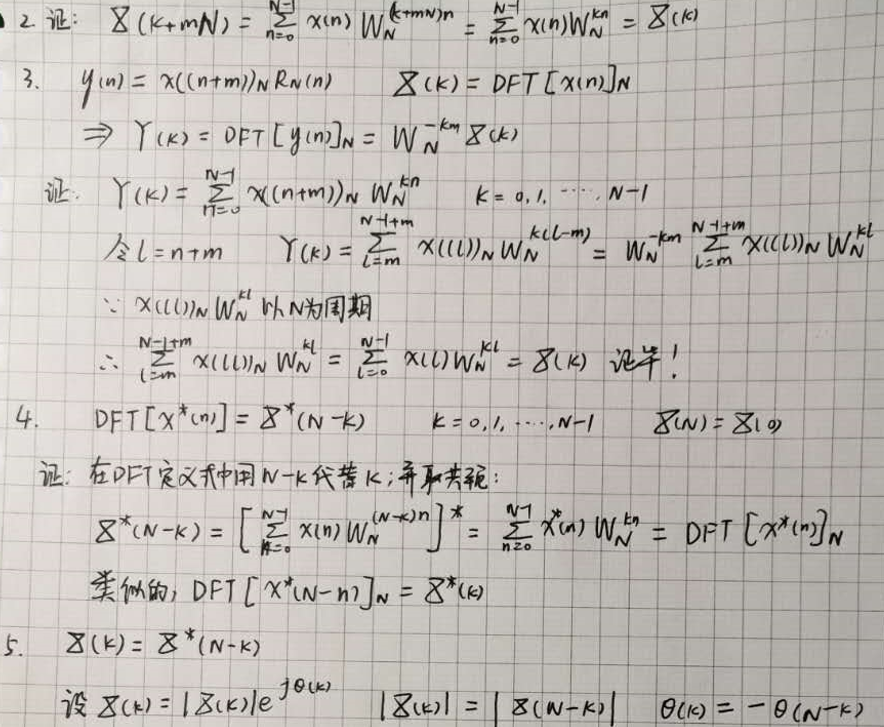 2. 证: X(k+mN) = \sum_{n=0}^{N-1} x(n) W_N^{(k+mN)n} = \sum_{n=0}^{N-1} x(n) W_N^{kn} = X(k)
3. y(n) = x((n+m))_N R_N(n) X(k) = DFT[x(n)]_N
⇒ Y(k) = DFT[y(n)]_N = W_N^{-km} X(k)
证: Y(k) = \sum_{n=0}^{N-1} x((n+m))_N W_N^{kn} k = 0, 1, ⋯⋯, N-1
令 l = n+m Y(k) = \sum_{l=m}^{N-1+m} x((l))_N W_N^{k(l-m)} = W_N^{-km} \sum_{l=m}^{N-1+m} x((l))_N W_N^{kl}
∵ x((l))_N W_N^{kl} 以N为周期
∴ \sum_{l=m}^{N-1+m} x((l))_N W_N^{kl} = \sum_{l=0}^{N-1} x(l) W_N^{kl} = X(k) 证毕!
4. DFT[x*(n)] = X*(N-k) k = 0, 1, ⋯⋯, N-1 X(N) = X(0)
证: 在DFT定义式中用N-k代替k; 并取共轭:
X*(N-k) = [\sum_{n=0}^{N-1} x(n) W_N^{(N-k)n}]* = \sum_{n=0}^{N-1} x*(n) W_N^{kn} = DFT[x*(n)]_N
类似的, DFT[x*(N-n)]_N = X*(k)
5. X(k) = X*(N-k)
设 X(k) = |X(k)|e^{jθ(k)} |X(k)| = |X(N-k)| θ(k) = -θ(N-k)